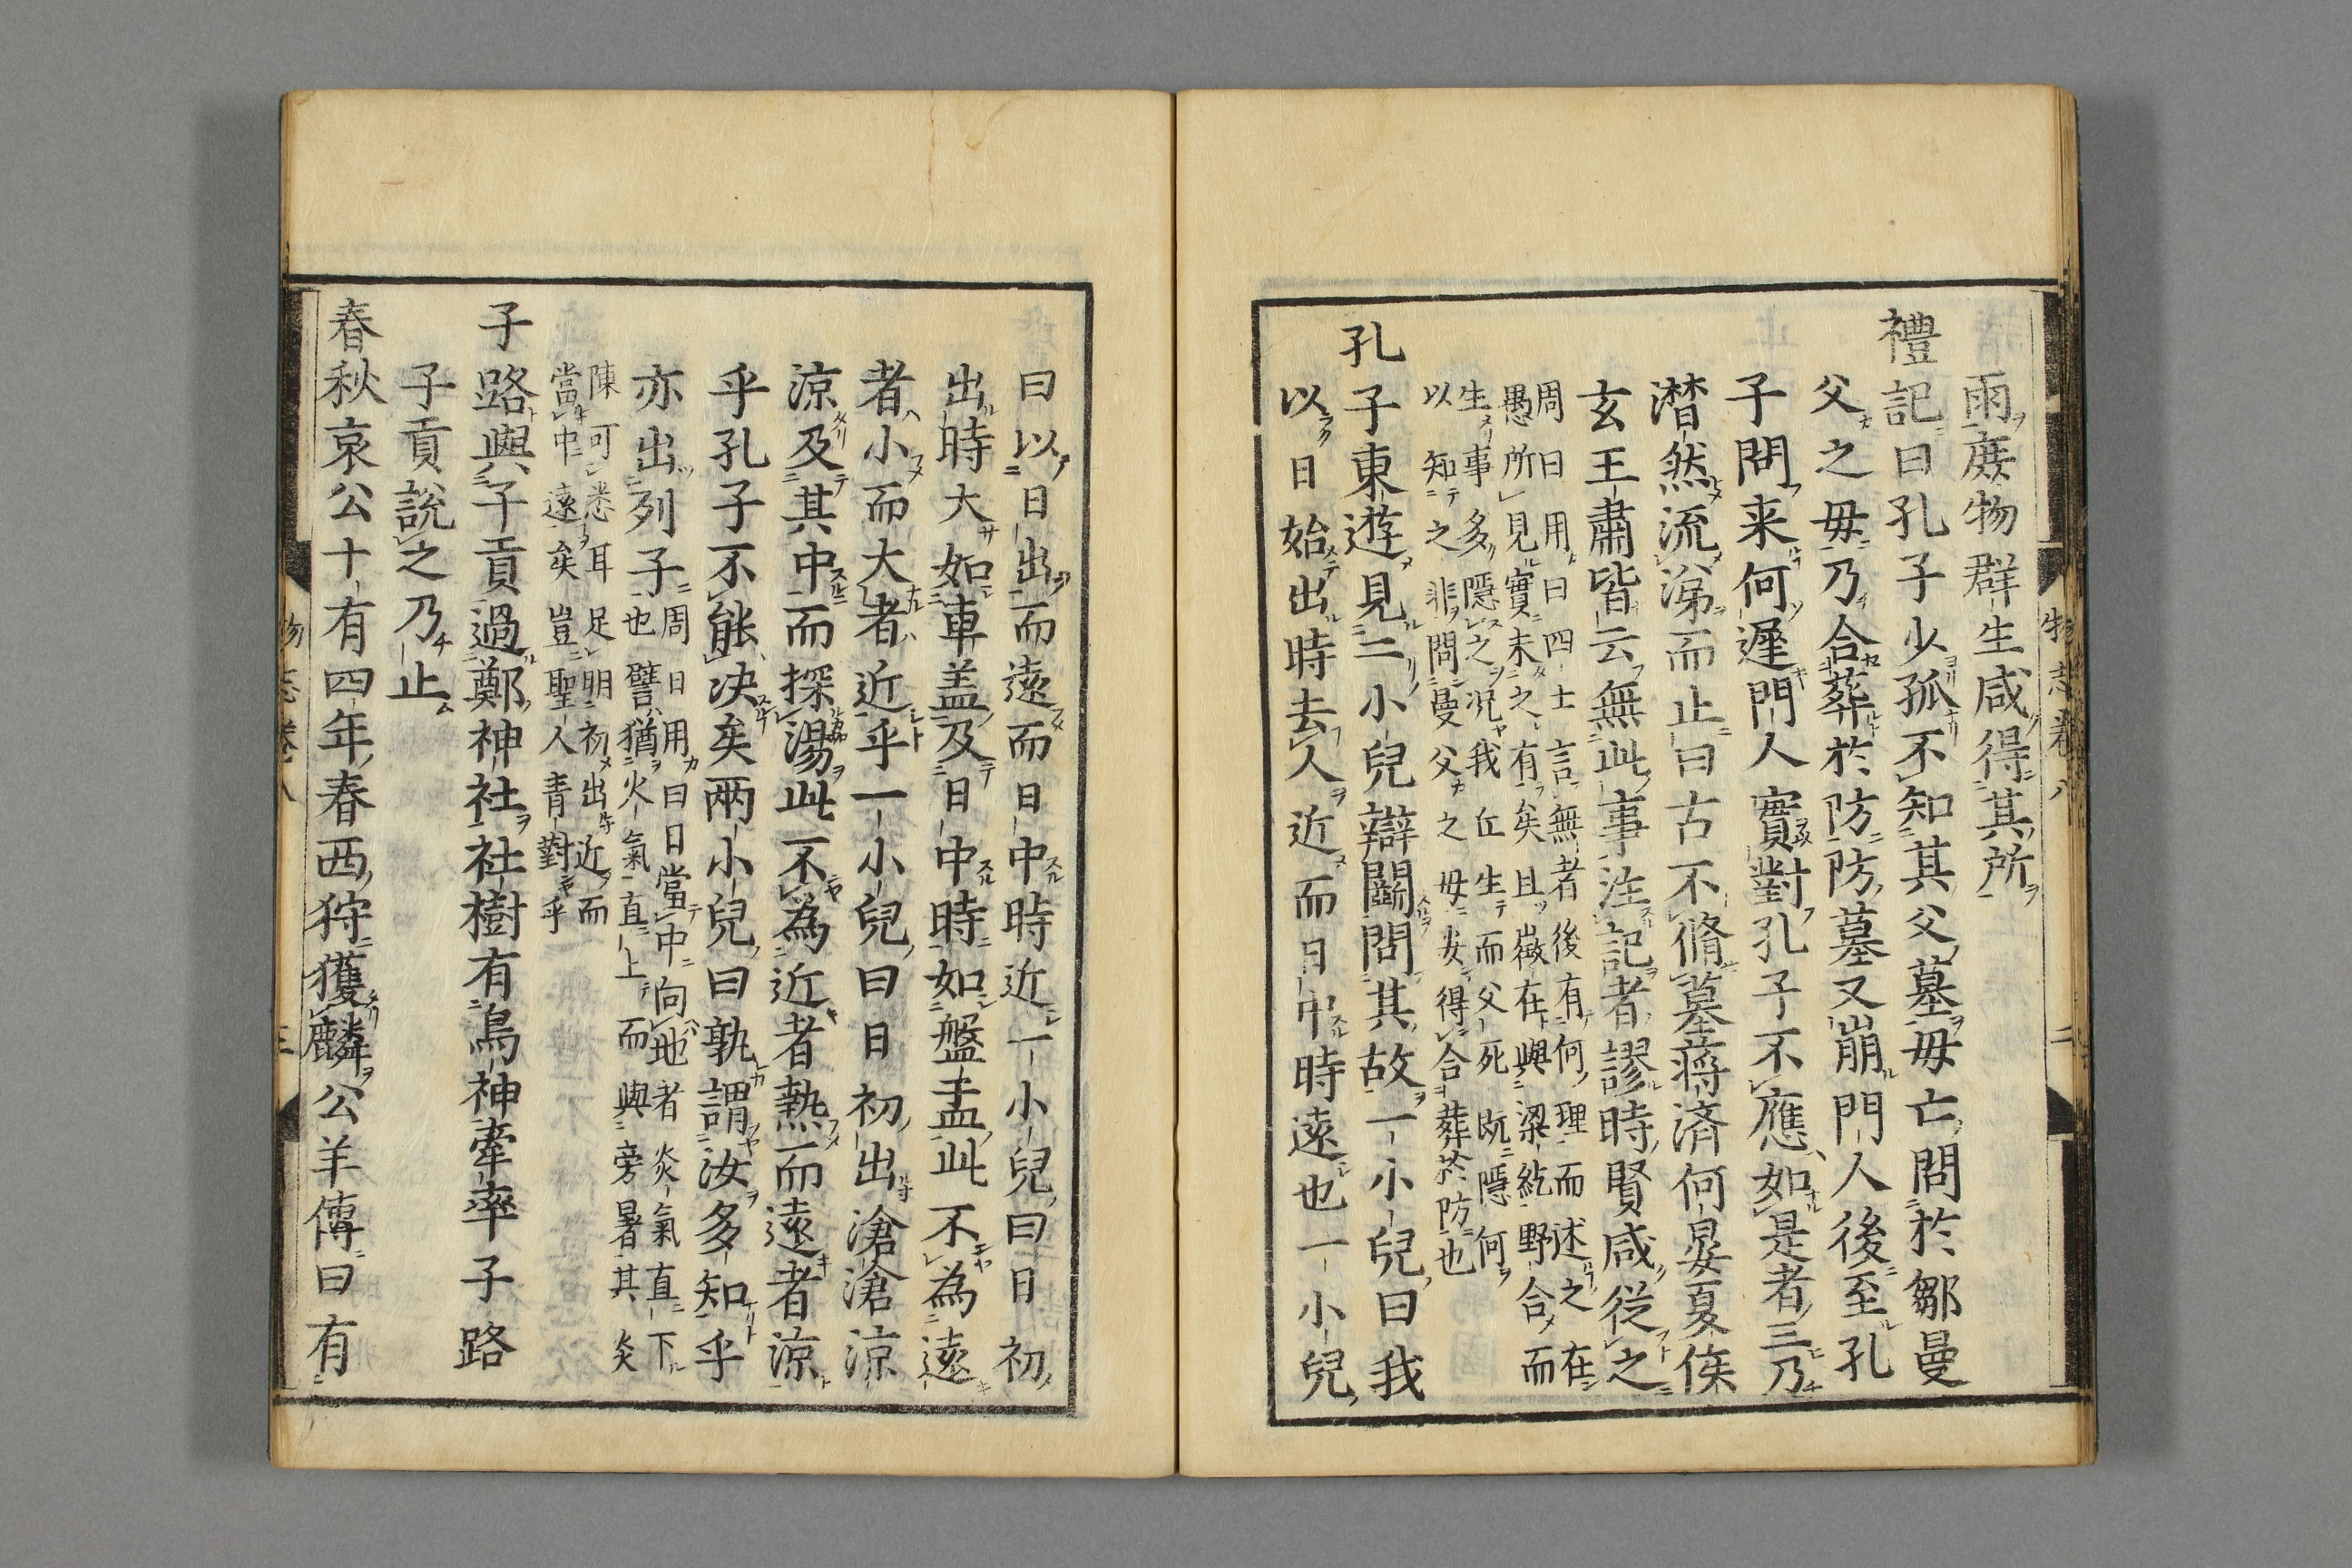 物志卷八 二
雨庶物群生咸得其所
禮記曰孔子少孤不知其父墓母亡問於鄒曼
父之母乃合葬於防防墓又崩門人後至孔
子問来何遲門人實對孔子不應如是者三乃
潸然流涕而止曰古不脩墓蒋済何晏夏侯
玄王肅皆云無此事注記者謬時賢咸従之
周日用曰四士言無者後有何理而述之在
愚所見實未之有矣且徵在與梁紇野合而
生事多隠之况我丘生而父死既隠何
以知之非問曼父之母安得合葬於防也
孔子東遊見二小兒辯鬭問其故一小兒曰我
以日始出時去人近而日中時遠也一小兒
曰以日出而遠而日中時近一小兒曰日初
出時大如車盖及日中時如盤盂此不為遠
者小而大者近乎一小兒曰日初出滄滄涼
涼及其中而探湯此不為近者熱而遠者涼
乎孔子不能决矣兩小兒曰孰謂汝多知乎
亦出列子
周日用曰日當中向地者炎氣直下
也譬猶火氣直上而與旁暑其炎
陳可悉耳足明初出近而
當中遠矣豈聖人青對乎
子路與子貢過鄭神社社樹有鳥神牽率子路
子貢說之乃止
春秋哀公十有四年春西狩獲麟公羊傳曰有
物志卷八 三